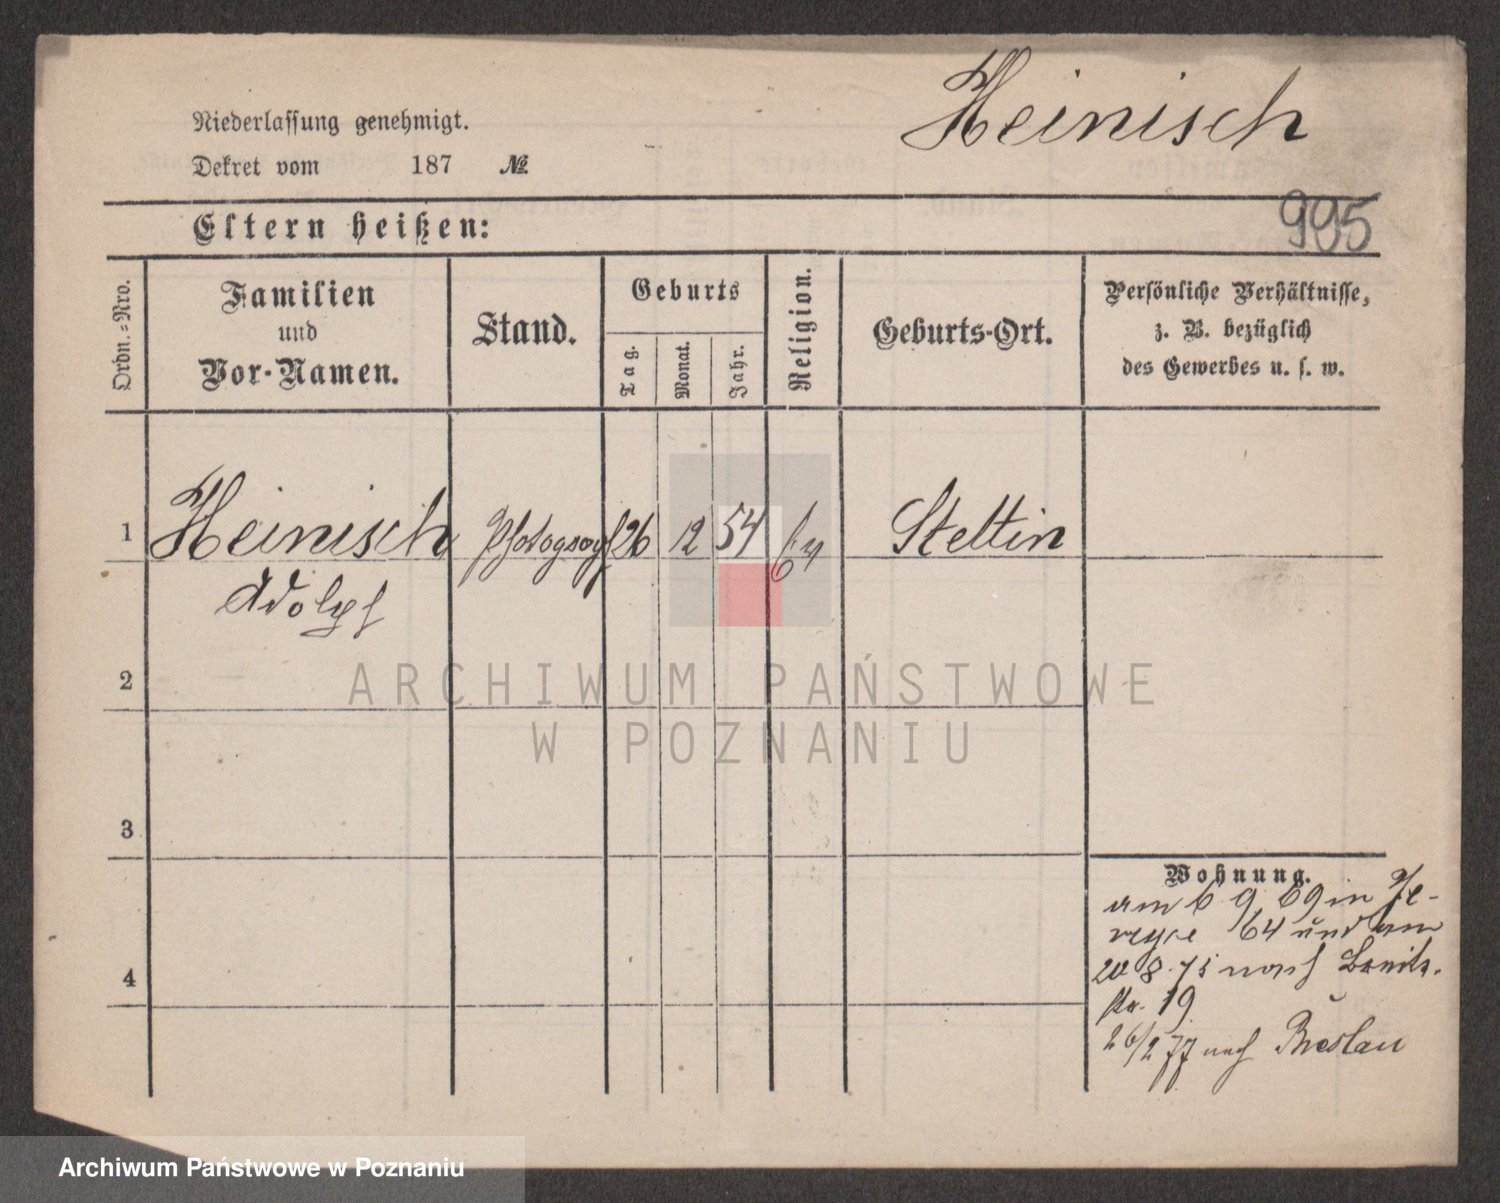 Heinisch
Niederlassung genehmigt.
Dekret vom 187 №
995
Eltern heißen:
Ordn.-Nro.
Familien
und
Vor-Namen.
Stand.
Geburts
Tag.
Monat.
Jahr.
Religion.
Geburts-Ort.
Persönliche Verhältnisse,
z. B. bezüglich
des Gewerbes u. s. w.
1 Heinisch Photograph 26 12 54 ev Stettin
Adolph
2
3
4
Wohnung.
am 6 9 69 in
64 und am
20 8 75 nach
19
26/2 77 nach Breslau
ARCHIWUM PAŃSTWOWE
W POZNANIU
Archiwum Państwowe w Poznaniu